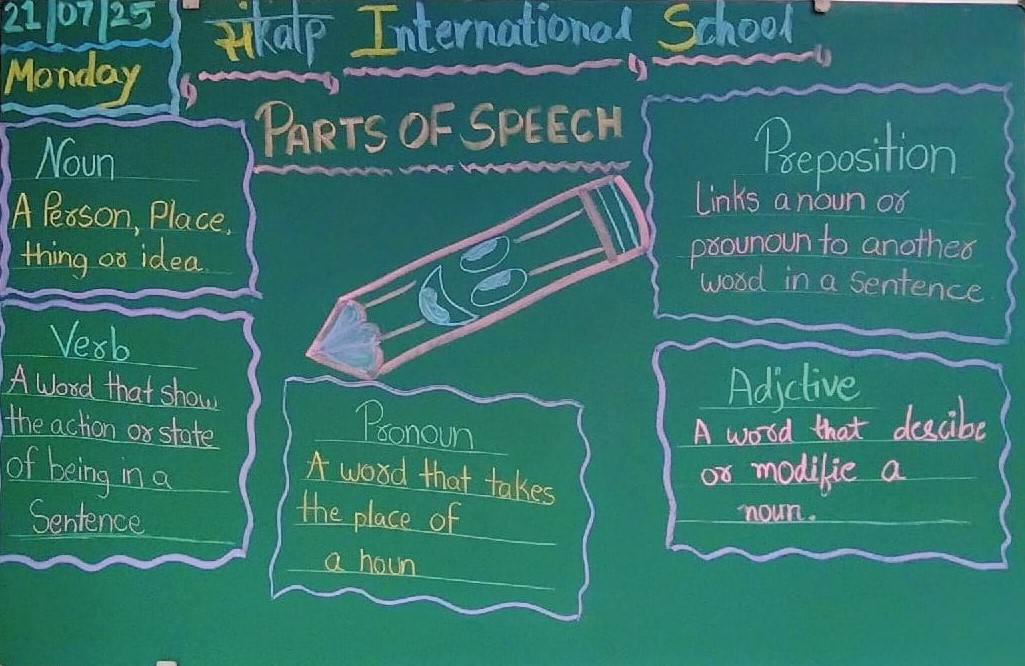 21/07/25
Monday
संkalp International School
PARTS OF SPEECH
Noun
A Person, Place,
thing or idea.
Verb
A word that show
the action or state
of being in a
Sentence
Pronoun
A word that takes
the place of
a noun
Preposition
Links a noun or
prounoun to another
word in a sentence.
Adjctive
A word that descibe
or modifie a
noun.